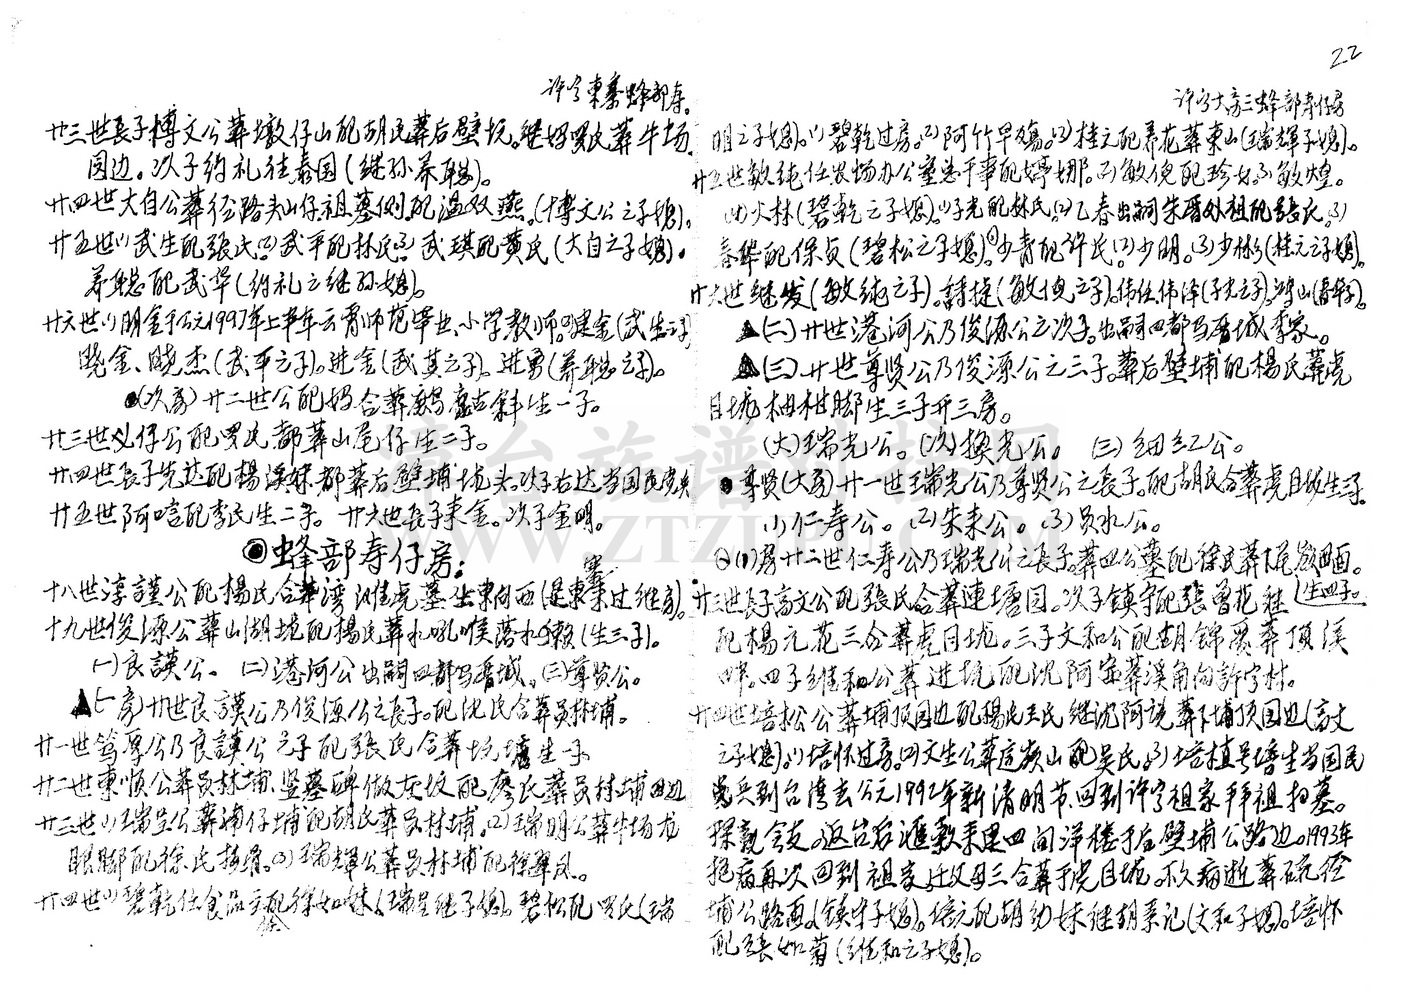 22
许字東寨蜂部寿。
廿三世長子博文公葬墩仔山配胡氏葬后壁坑。继妈罗氏葬牛场
园边。次子约礼往泰国(继孙养聪)。
廿四世大白公葬径路尖山仔祖墓侧配温双燕。(博文公之子媳)。
廿五世(1)武生配張氏(2)武平配林氏(3)武琪配黄氏(大白之子媳)。
养聪配武华(约礼之继孙媳)。
廿六世(1)明金于公元1997年上半年云霄师范毕业、小学教师。建金(武生之子)
晓金、晓杰(武平之子)。进金(武其之子)。进勇(养聪之子)。
(次房)廿二世公配妈合葬 斜生一子。
廿三世 仔公配罗氏都葬山尾仔生二子。
廿四世長子先达配楊溪妹都葬后壁埔垅头。次子右达当国民党兵
廿五世阿 配李氏生二子。廿六世長子来金。次子金明。
蜂部寿仔房:
十八世淳謹公配楊氏合葬湾 虎墓坐東向西(是東寨过继房)。
十九世俊源公葬山湖垅配楊氏葬水吼喉落水獭(生三子)。
(一)良謨公。(二)港河公出嗣四都马厝城。(三)尊贤公。
▲(一房)廿世良謨公乃俊源公之長子。配沈氏合葬员林埔。
廿一世笃厚公乃良謨公之子配張氏合葬坑墘生一子
廿二世東顺公葬员林埔、竖墓碑做灰坟配廖氏葬员林埔田边
廿三世(1)瑞呈公葬埔仔埔配胡氏葬员林埔。(2)瑞明公葬牛场龙
眼脚配徐氏 。(3)瑞輝公葬员林埔配徐翠凤。
廿四世(1)碧乾仕食品 配徐如妹(瑞呈继子媳)。碧松配罗氏(瑞
许字大房三蜂部寿仔房
明之子媳)。(1)碧乾过房。(2)阿竹早殇。(3)桂元配养花葬東山(瑞輝子媳)。
廿五世敏纯任农场办公室总干事配婷娜。(2)敏俊配珍女(3)敏煌。
(4)火林(碧乾之子媳)。(1)子光配林氏(2)乙春出嗣朱厝外祖配張氏(3)
春华配保贞(碧松之子媳)。(1)少青配许氏。(2)少明。(3)少彬(桂元之子媳)。
廿六世继发(敏纯之子)。詩捷(敏俊之子)。伟任、伟泽(子光之子)。鸿山(春华子)。
▲(二)廿世港河公乃俊源公之次子。出嗣四都马厝城李家。
▲(三)廿世尊贤公乃俊源公之三子。葬后壁埔配楊氏葬虎
目垅柚柑脚生三子开三房。
(大)瑞光公。(次)换光公。(三)細红公。
尊贤(大房)廿一世瑞光公乃尊贤公之長子。配胡氏合葬虎目垅生三子
(1)仁寿公。(2)朱来公。(3)员水公。
(1)房廿二世仁寿公乃瑞光公之長子。葬四公墓配徐民葬 尾 面。
生四子。
廿三世長子高文公配張氏合葬連塘园。次子鎮宇配張曾花继
配楊元花三合葬虎目垅。三子文和公配胡錦 葬頂溪
岸。四子维和公葬进坑配沈阿宝葬溪角向許字村。
廿四世培松公葬埔顶园边配楊氏王氏继沈阿说葬下埔顶园边(高文
之子媳)。(1)培怀过房。(2)文生公葬 山配吴氏。(3)培植号培生当国民
党兵到台湾去公元1992年新清明节、回到许字祖家拜祖扫墓。
探親会友。返台后匯款来里四间洋楼于后壁埔公路边。1993年
抱病再次回到祖家、 父母三合葬于虎目垅。不久病逝葬 径
埔公路面。(鎮宇子媳)。 元配胡幼妹继胡来记(文和子媳)。培怀
配張如菊(维和之子媳)。